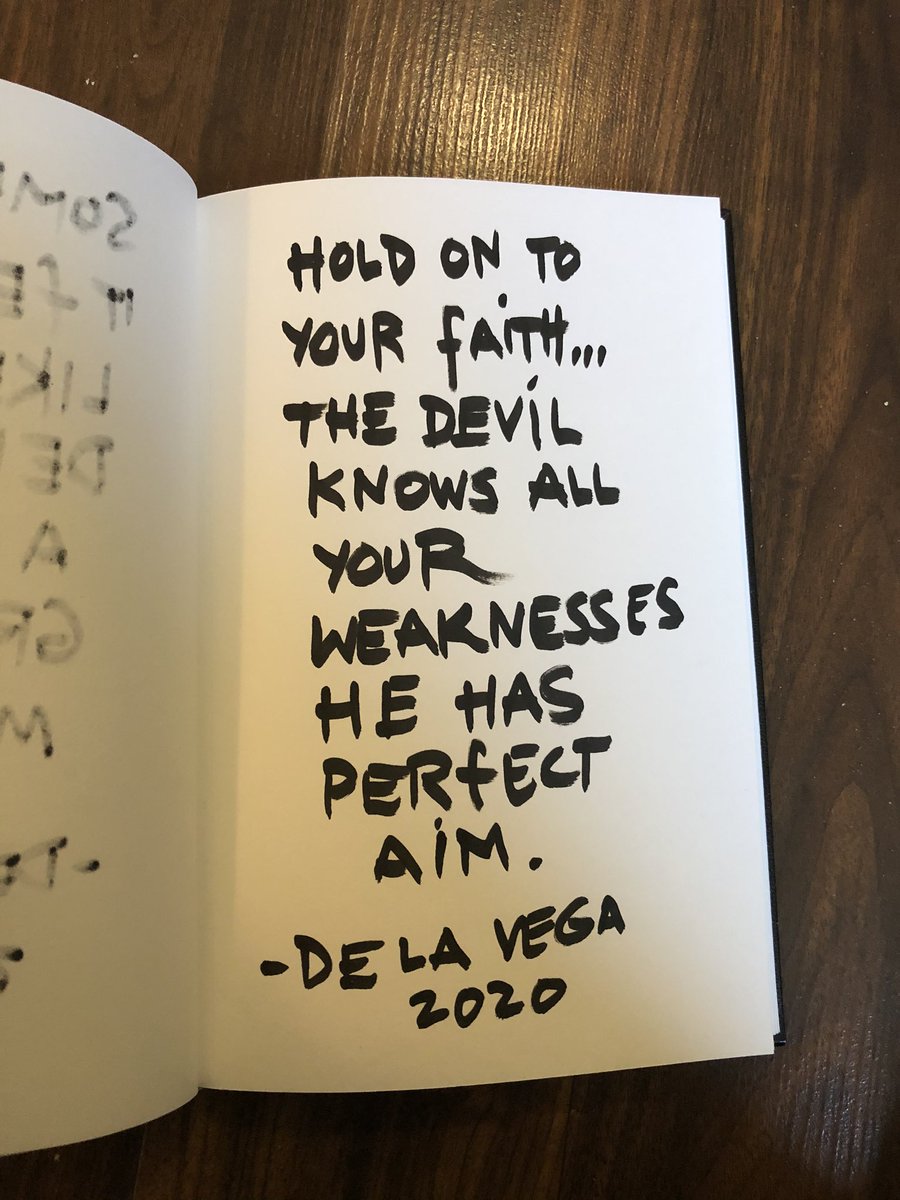 HOLD ON TO
YOUR FAITH...
THE DEVIL
KNOWS ALL
YOUR
WEAKNESSES
HE HAS
PERFECT
AIM.
-DE LA VEGA
2020